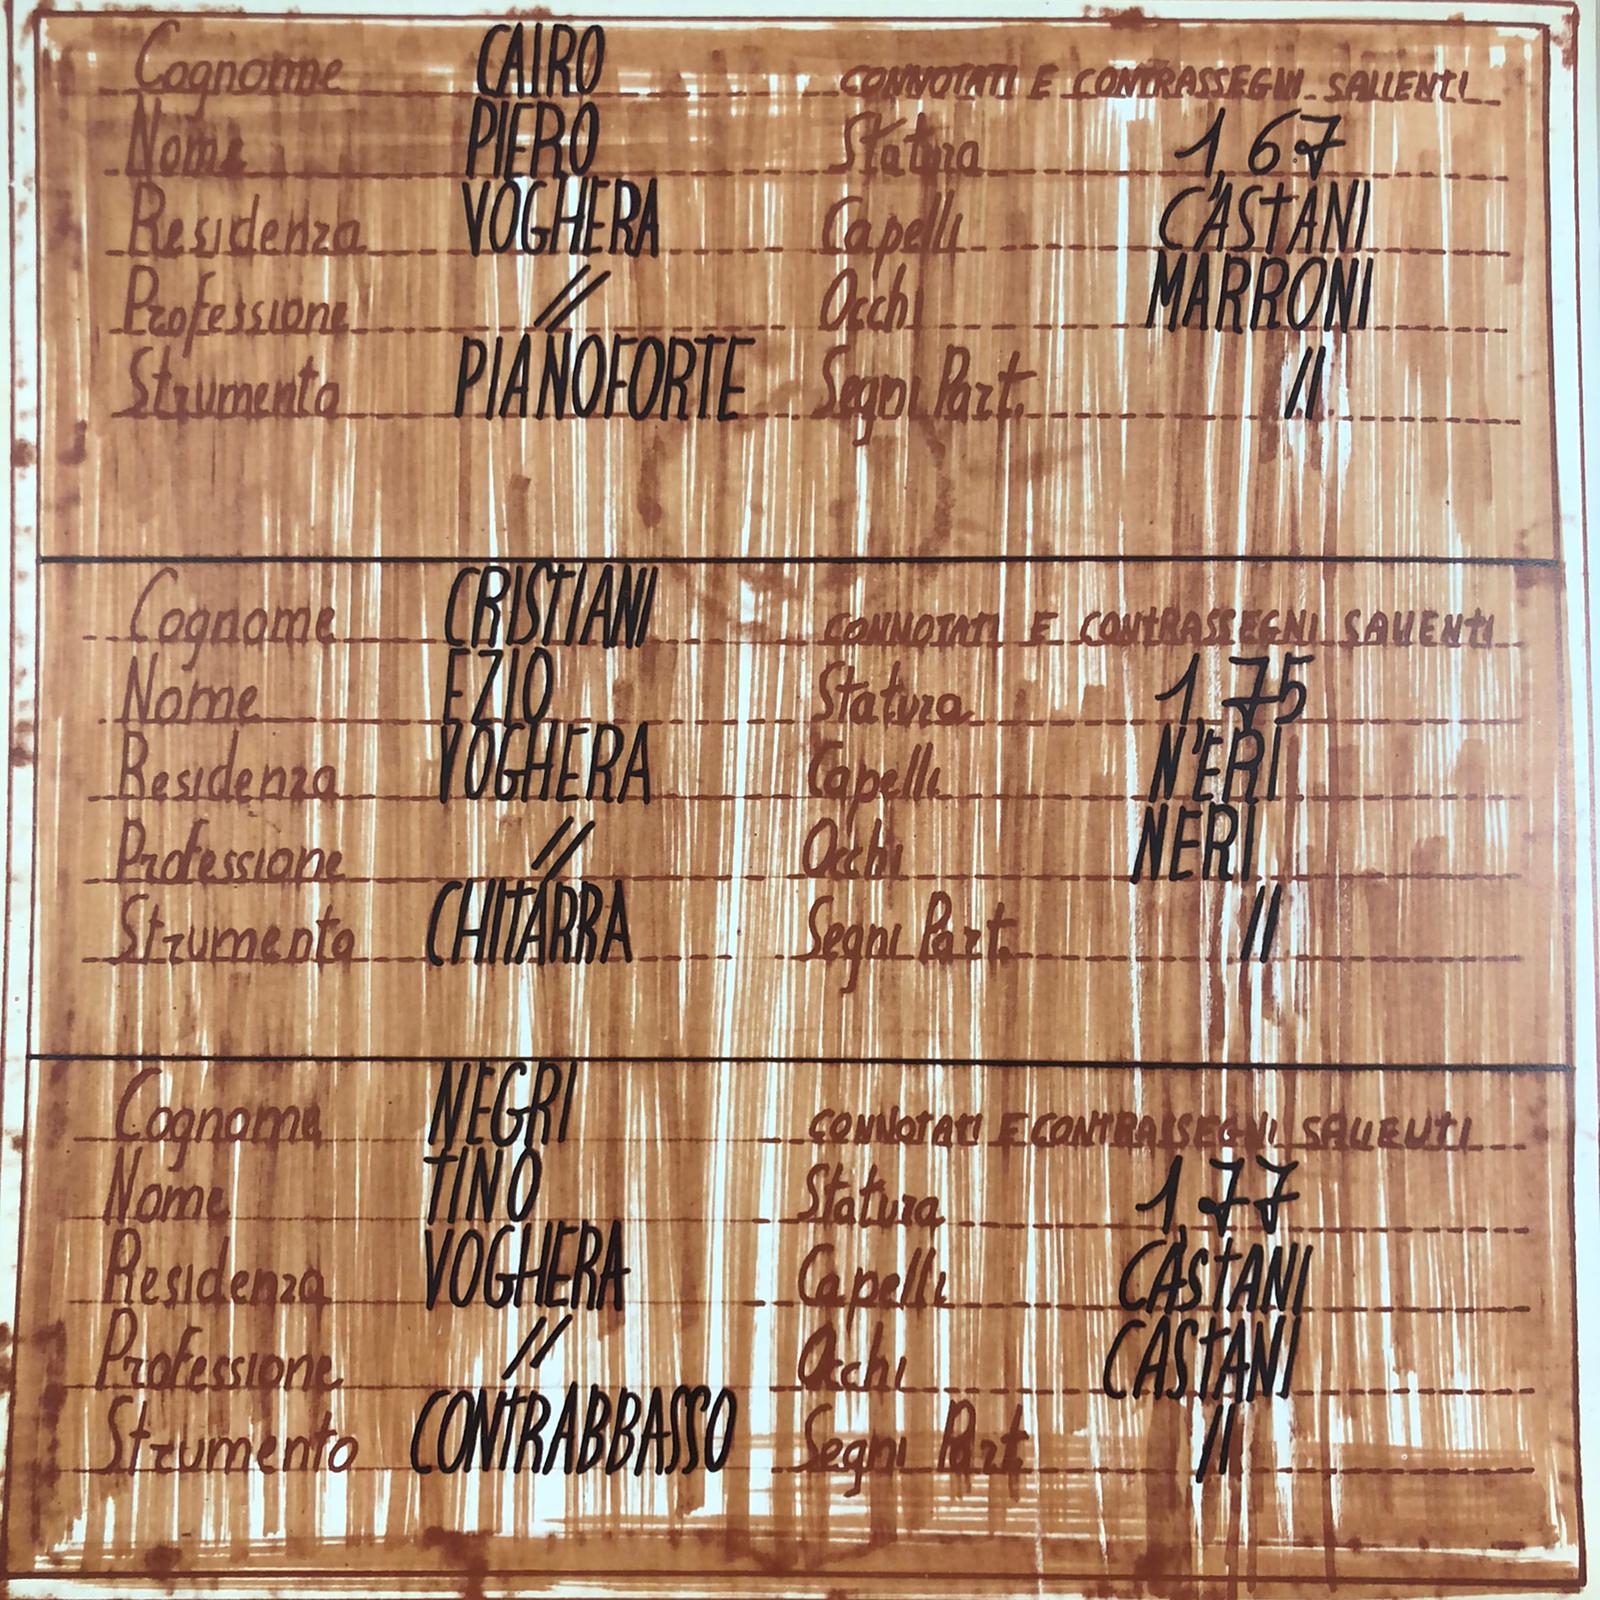 Cognome CAIRO CONNOTATI E CONTRASSEGNI SALIENTI
Nome PIERO Statura 1,67
Residenza VOGHERA Capelli CASTANI
Professione // Occhi MARRONI
Strumento PIANOFORTE Segni Part. //
Cognome CRISTIANI CONNOTATI E CONTRASSEGNI SALIENTI
Nome EZIO Statura 1,75
Residenza VOGHERA Capelli NERI
Professione // Occhi NERI
Strumento CHITARRA Segni Part. //
Cognome NEGRI CONNOTATI E CONTRASSEGNI SALIENTI
Nome TINO Statura 1,77
Residenza VOGHERA Capelli CASTANI
Professione // Occhi CASTANI
Strumento CONTRABBASSO Segni Part. //